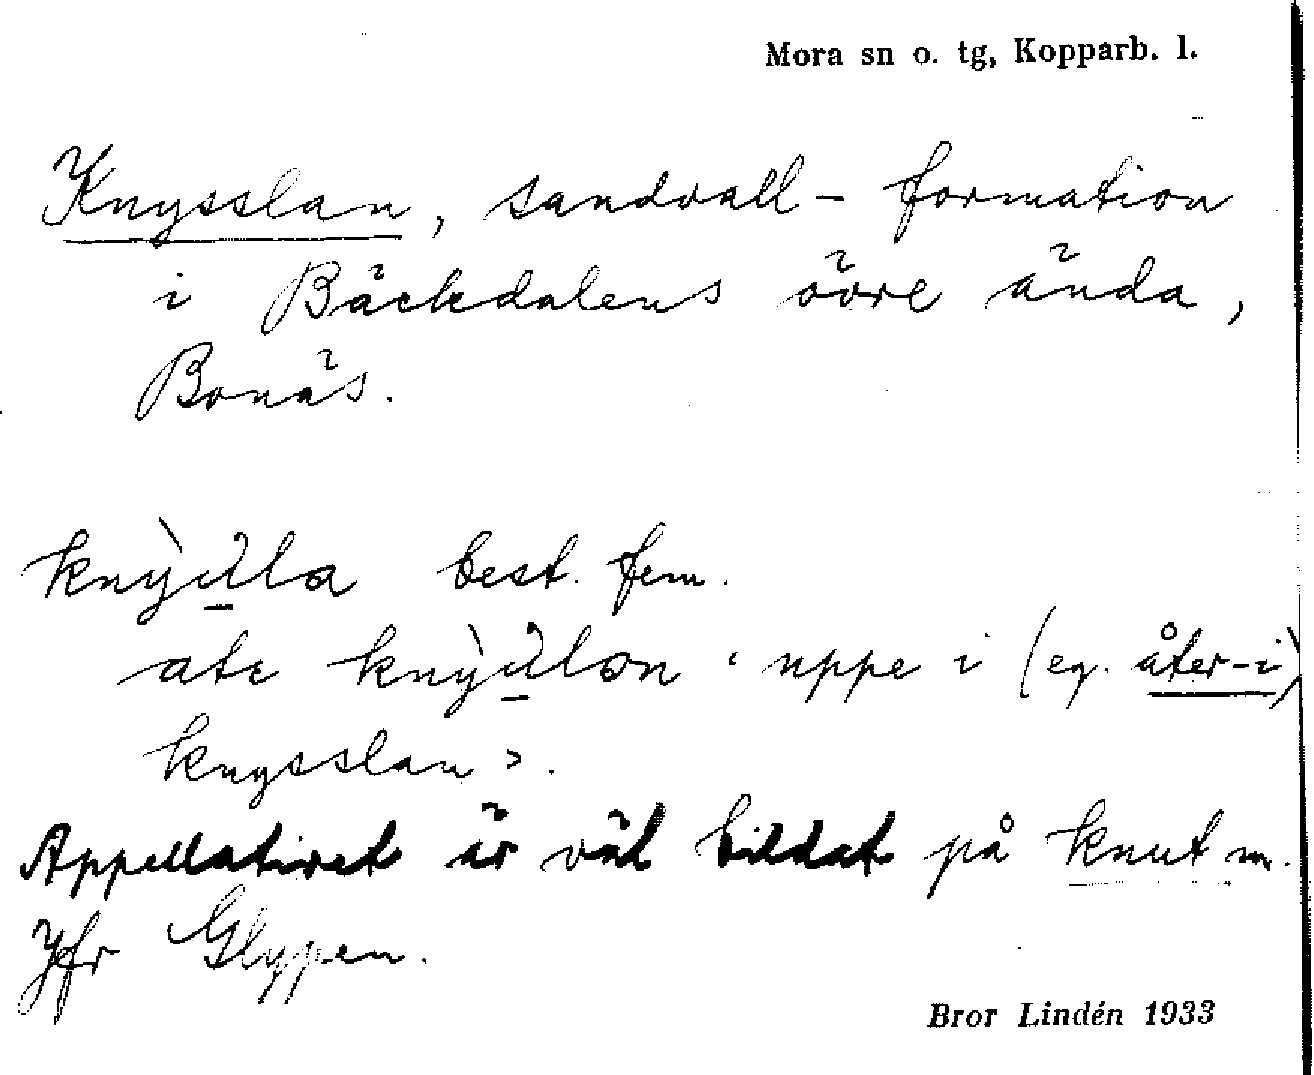 Mora sn o. tg, Kopparb. l.
Knysslan, sandvall-formation
i Bäckdalens övre ända,
Bonäs.
best. fem.
uppe i (eg. åter-i)
knysslan>.
Appellativet är väl bildat på knut m.
Jfr Glypen.
Bror Lindén 1933